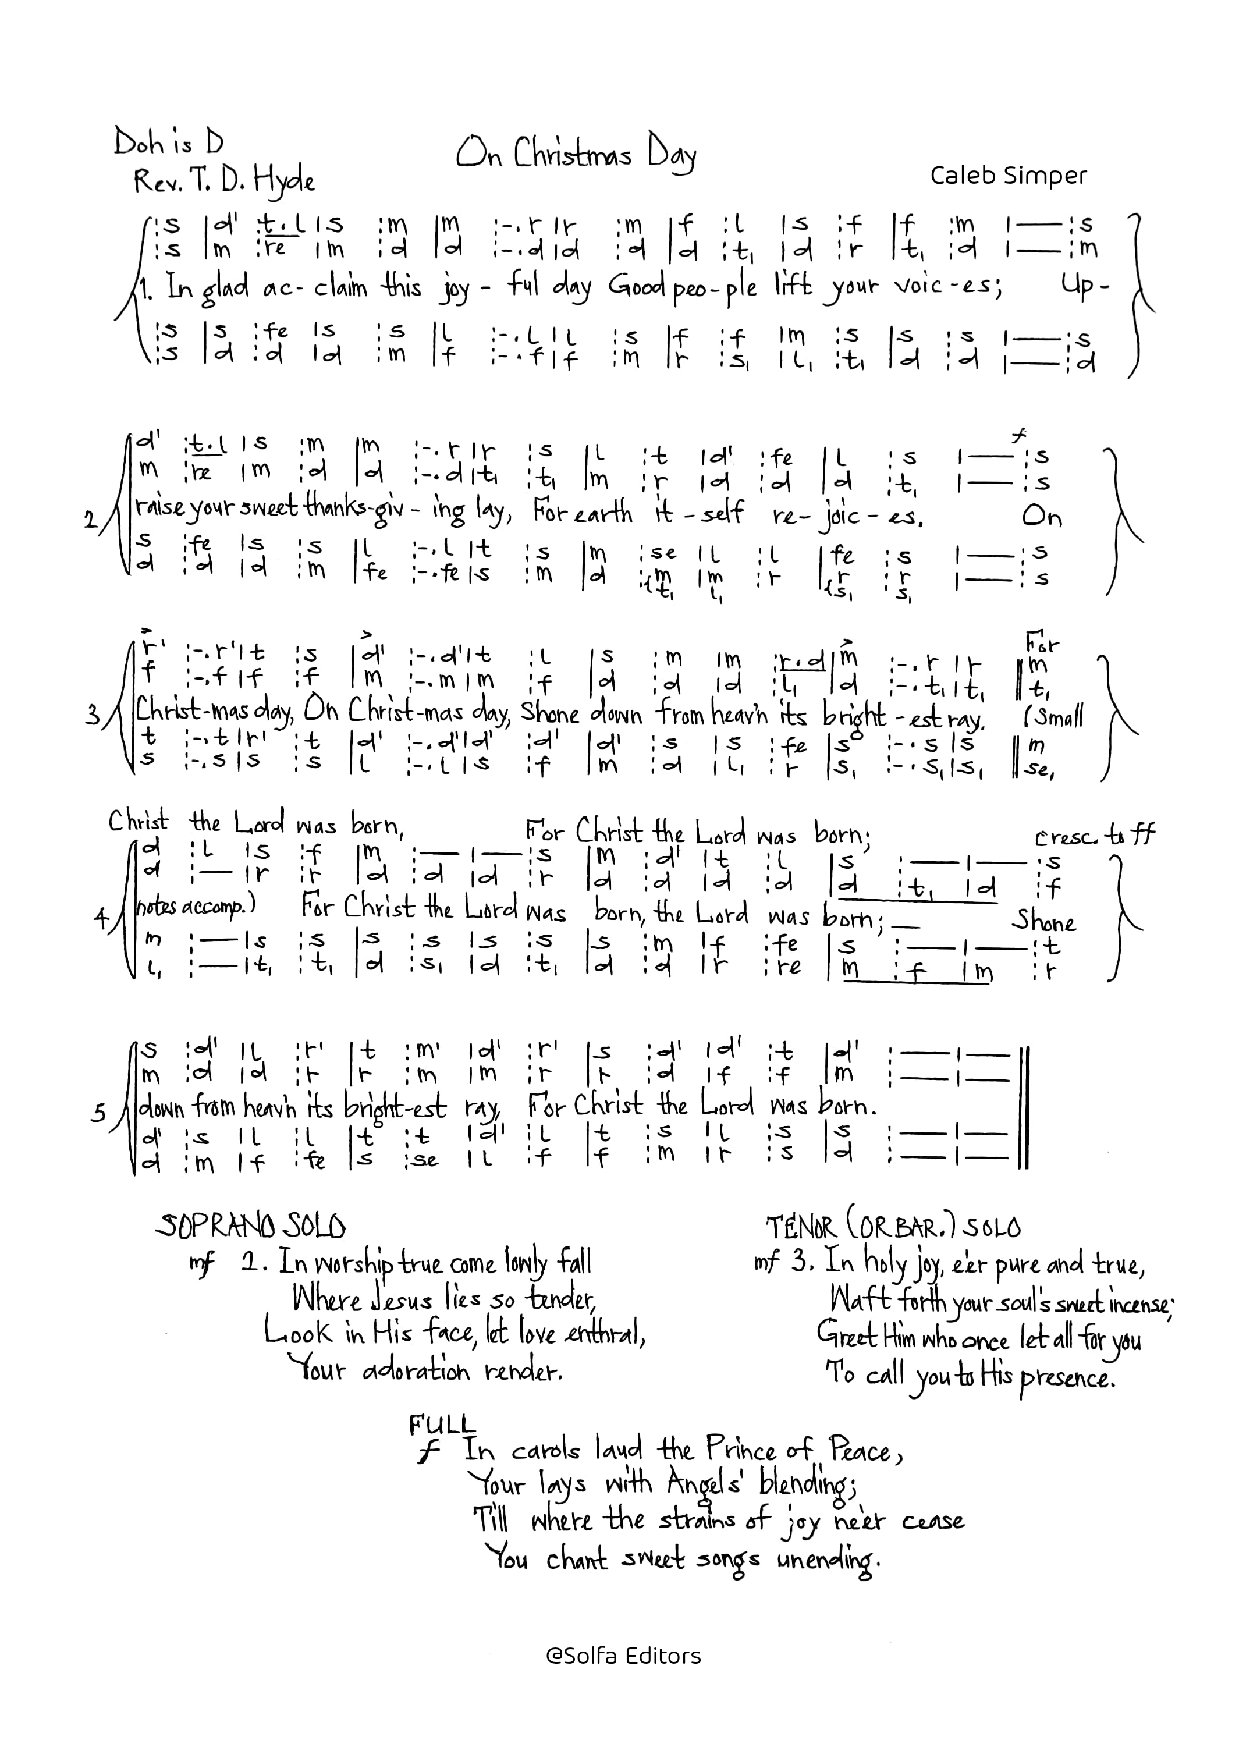 Doh is D
On Christmas Day
Rev. T. D. Hyde
Caleb Simper
:s |d' :t.l |s :m |m :-.r |r :m |f :l |s :f |f :m |— :s
:s |m :re |m :d |d :-.d |d :d |d :t, |d :r |t, :d |— :m
1. In glad ac- claim this joy - ful day Good peo-ple lift your voic-es; Up-
:s |s :fe |s :s |l :-.l |l :s |f :f |m :s |s :s |— :s
:s |d :d |d :m |f :-.f |f :m |r :s, |l, :t, |d :d |— :d
f
d' :t.l |s :m |m :-.r |r :s |l :t |d' :fe |l :s |— :s
m :re |m :d |d :-.d |t, :t, |m :r |d :d |d :t, |— :s
2 raise your sweet thanks-giv - ing lay, For earth it - self re - joic - es. On
s :fe |s :s |l :-.l |t :s |m :se |l :l |fe :s |— :s
d :d |d :m |fe :-.fe |s :m |d :{m |m :r |{r :r |— :s
t, l, s, s,
> > > For
r' :-.r' |t :s |d' :-.d' |t :l |s :m |m :r.d |m :-.r |r || m
f :-.f |f :f |m :-.m |m :f |d :d |d :l, |d :-.t, |t, || t,
3 Christ-mas day, On Christ-mas day, Shone down from heav'n its bright - est ray. (Small
t :-.t |r' :t |d' :-.d' |d' :d' |d' :s |s :fe |s :-.s |s || m
s :-.s |s :s |l :-.l |s :f |m :d |l, :r |s, :-.s, |s, || se,
Christ the Lord was born, For Christ the Lord was born; cresc. to ff
d :l |s :f |m :— |— :s |m :d' |t :l |s :— |— :s
d :— |r :r |d :d |d :r |d :d |d :d |d :t, |d :f
4 notes accomp.) For Christ the Lord was born, the Lord was born; — Shone
m :— |s :s |s :s |s :s |s :m |f :fe |s :— |— :t
l, :— |t, :t, |d :s, |d :t, |d :d |r :re |m :f |m :r
s :d' |l :r' |t :m' |d' :r' |s :d' |d' :t |d' :— |— ||
m :d |d :r |r :m |m :r |r :d |f :f |m :— |— ||
5 down from heav'n its bright-est ray, For Christ the Lord was born.
d' :s |l :l |t :t |d' :l |t :s |l :s |s :— |— ||
d :m |f :fe |s :se |l :f |f :m |r :s |d :— |— ||
SOPRANO SOLO
mf 2. In worship true come lowly fall
Where Jesus lies so tender,
Look in His face, let love enthral,
Your adoration render.
TENOR (OR BAR.) SOLO
mf 3. In holy joy, e'er pure and true,
Waft forth your soul's sweet incense;
Greet Him who once let all for you
To call you to His presence.
FULL
f In carols laud the Prince of Peace,
Your lays with Angels' blending;
Till where the strains of joy ne'er cease
You chant sweet songs unending.
@Solfa Editors